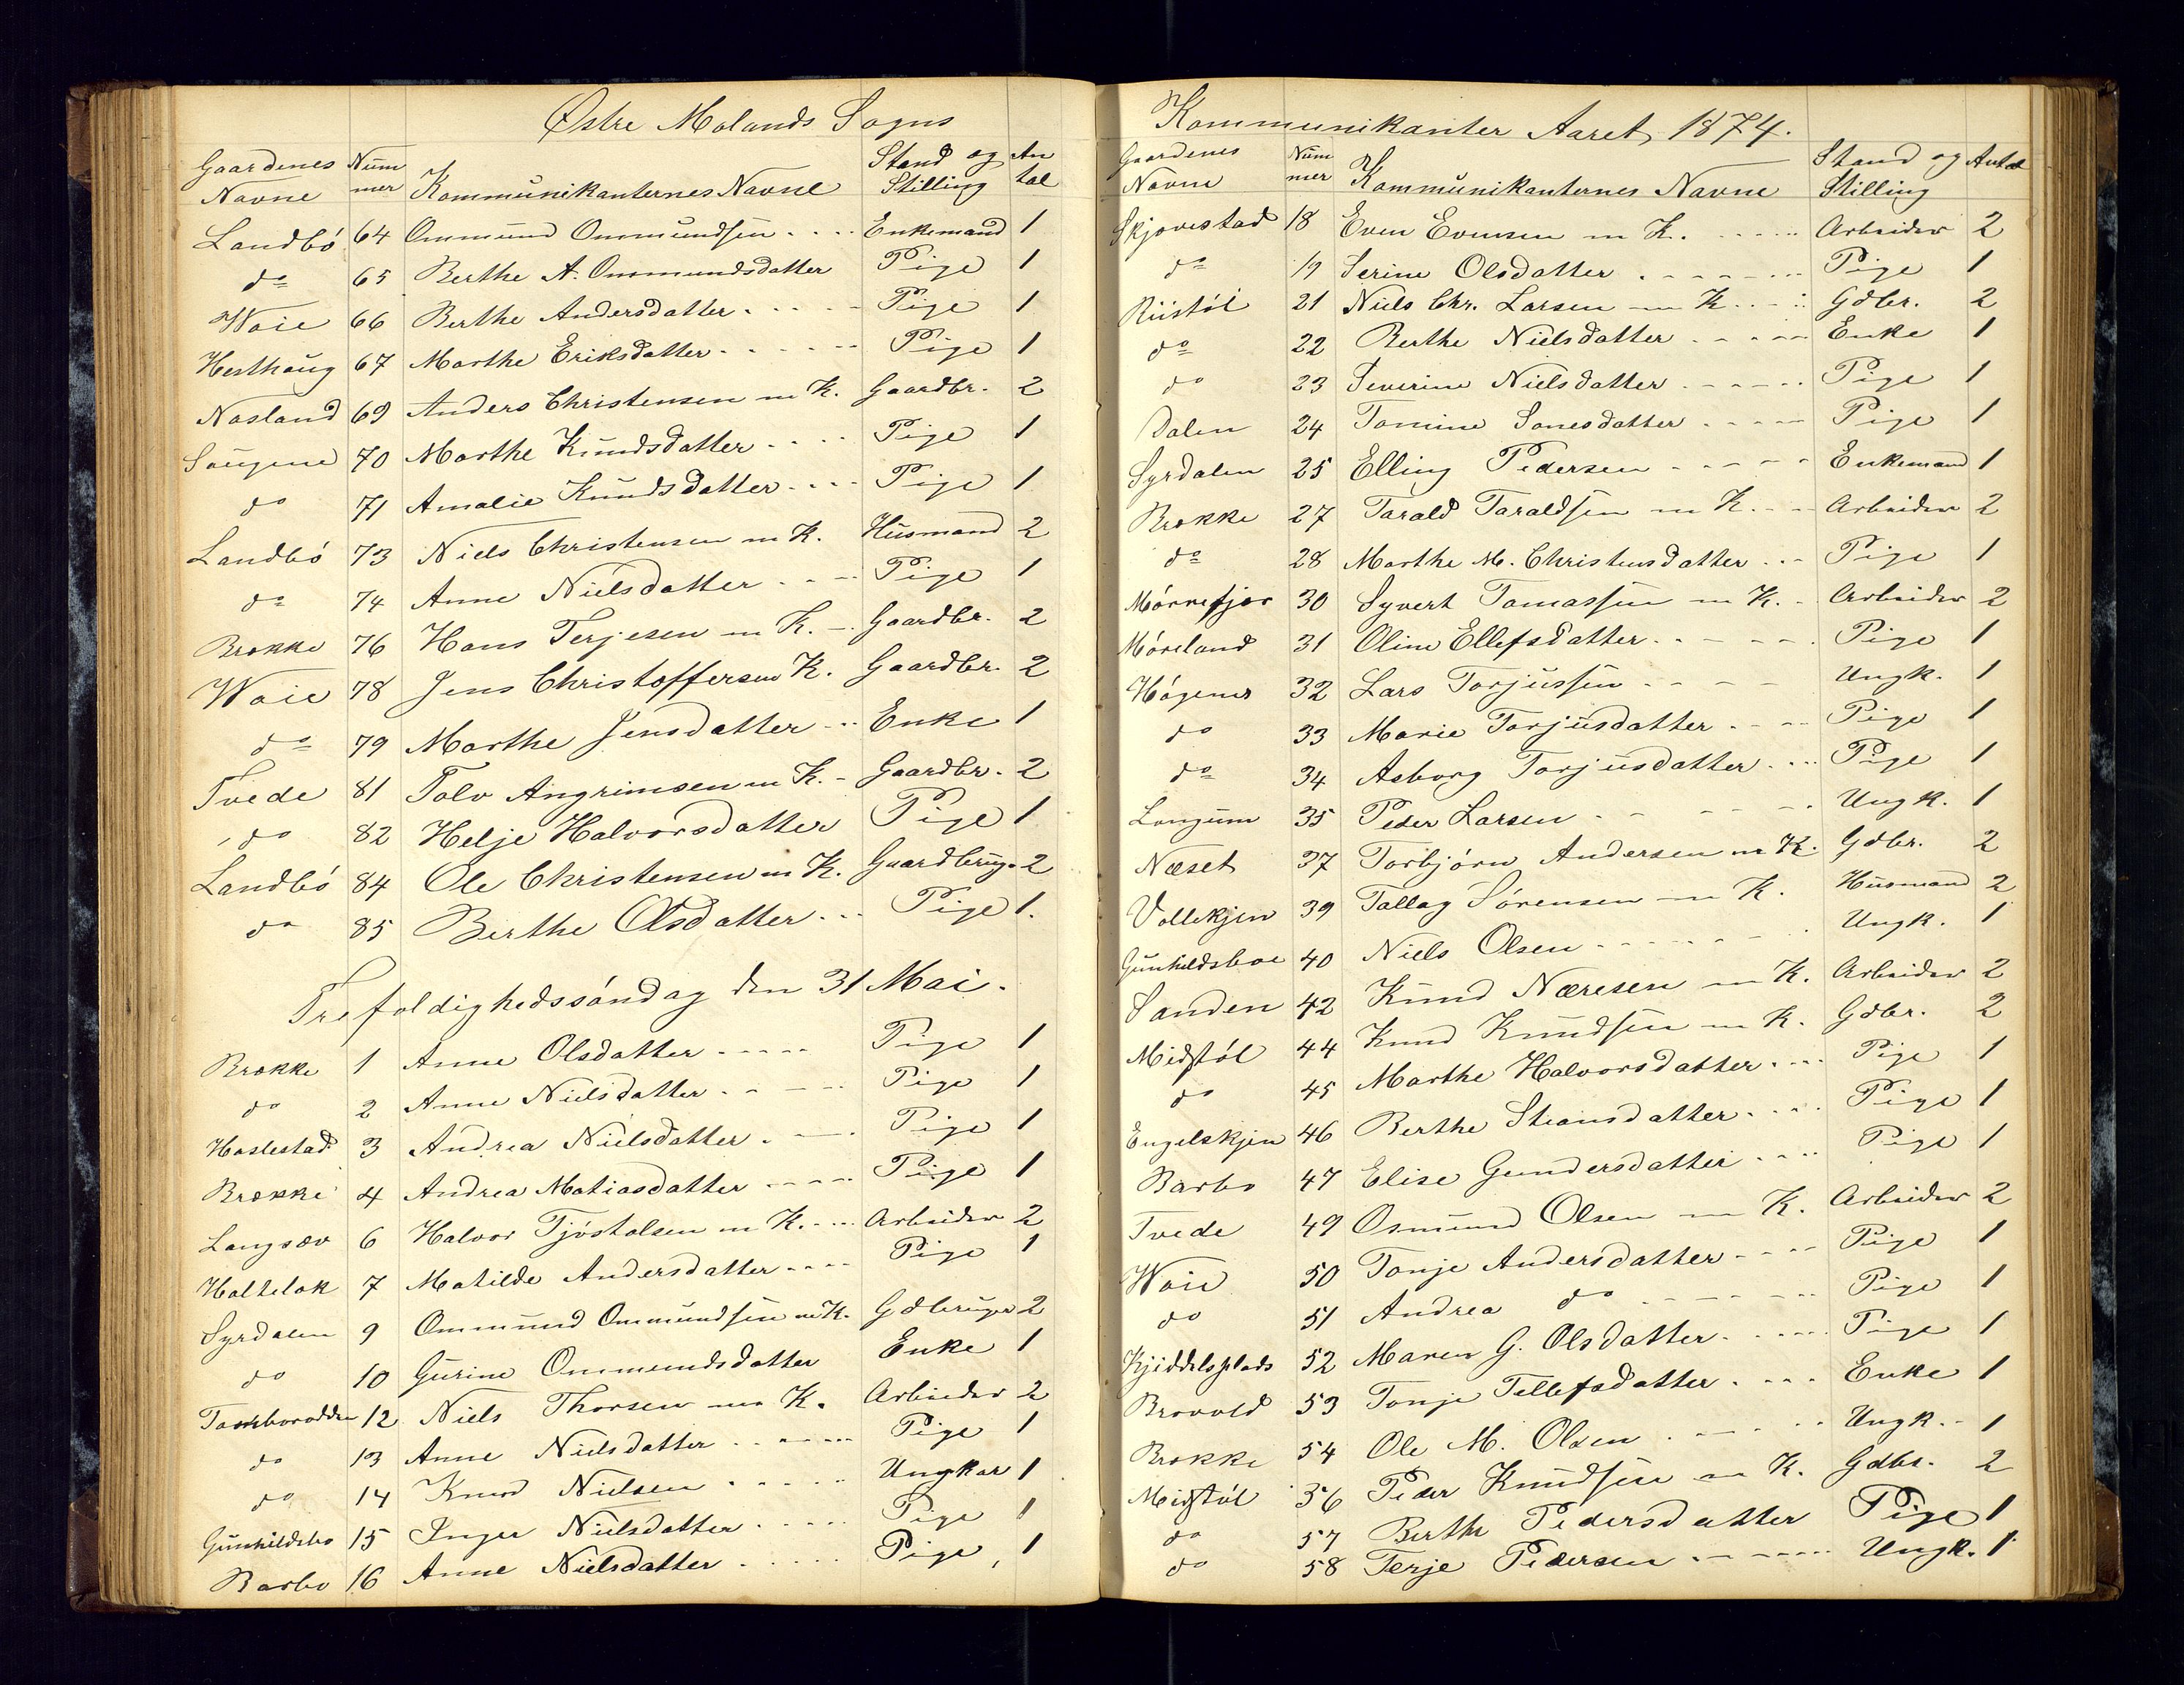 Østre Molands Sogns
Gaardenes Navne Num mer Kommunikanternes Navne Stand og Stilling An tal
Landbö 64 Ommund Ommundsen .... Enkemand 1
do 65 Berthe A. Ommundsdatter Pige 1
Woie 66 Berthe Andersdatter ..... Pige 1
Hesthaug 67 Marthe Eriksdatter ...... Pige 1
Nasland 69 Anders Christensen m K. Gaardbr. 2
Saugene 70 Marthe Knudsdatter .... Pige 1
do 71 Amalie Knudsdatter .... Pige 1
Landbö 73 Niels Christensen m K. Husmand 2
do 74 Anne Nielsdatter .... Pige 1
Brække 76 Hans Terjesen m K. - Gaardbr. 2
Woie 78 Jens Christoffersen K. Gaardbr. 2
do 79 Marthe Jensdatter ... Enke 1
Tvede 81 Tolv Angrimsen m K. - Gaardbr. 2
do 82 Helje Halvorsdatter Pige 1
Landbö 84 Ole Christensen m K. Gaardbrug. 2
do 85 Berthe Olsdatter ... Pige 1.
Trefoldighedssöndag den 31 Mai.
Brække 1 Anne Olsdatter ..... Pige 1
do 2 Anne Nielsdatter .... Pige 1
Haslestad 3 Andrea Nielsdatter .... Pige 1
Brække 4 Andrea Matiasdatter ..... Pige 1
Langsæv 6 Halvor Tjöstolsen m K. ... Arbeider 2
Holtelak 7 Matilde Andersdatter .... Pige 1
Syrdalen 9 Ommund Ommundsen m K. Gdbruger 2
do 10 Gurine Ommundsdatter Enke 1
12 Niels Thorsen m K. Arbeider 2
do 13 Anne Nielsdatter ...... Pige 1
do 14 Knud Nielsen ..... Ungkar 1
Gunhildsbo 15 Inger Nielsdatter ..... Pige 1
Barbo 16 Anne Nielsdatter ..... Pige 1
Kommunikanter Aaret 1874.
Gaardenes Navne Num mer Kommunikanternes Navne Stand og Stilling Antal
Skjovestad 18 Even Evensen m K. ..... Arbeider 2
do 19 Serine Olsdatter ....... Pige 1
Riistöl 21 Niels Chr. Larsen m K ... Gdbr. 2
do 22 Berthe Nielsdatter ..... Enke 1
do 23 Severine Nielsdatter ..... Pige 1
Dalen 24 Tomine Sonesdatter ..... Pige 1
Syrdalen 25 Elling Pedersen ..... Enkemand 1
Brække 27 Tarald Taraldsen m K. .. Arbeider 2
do 28 Marthe M. Christensdatter ... Pige 1
Mörrefjær 30 Syvert Tomassen m K. . Arbeider 2
Möreland 31 Oline Ellefsdatter ..... Pige 1
Högenes 32 Lars Torjussen .... Ungk. 1
do 33 Marie Torjusdatter .... Pige 1
do 34 Asborg Torjusdatter .... Pige 1
Longum 35 Peder Larsen ..... Ungk. 1
Næset 37 Torbjörn Andersen m K. Gdbr. 2
Vollekjen 39 Tallag Sörensen m K. Husmand 2
Gunhildsboe 40 Niels Olsen ....... Ungk. 1
Sanden 42 Knud Næresen m K. Arbeider 2
Midtöl 44 Knud Knudsen m K. Gdbr. 2
do 45 Marthe Halvorsdatter .... Pige 1
Engelskjen 46 Berthe Stiansdatter .... Pige 1
Barbo 47 Elise Gundersdatter .... Pige 1
Tvede 49 Osmund Olsen m K. Arbeider 2
Woie 50 Tonje Andersdatter .... Pige 1
do 51 Andrea do ...... Pige 1
Kjiddelsplads 52 Maren G. Olsdatter ..... Pige 1
Brovold 53 Tonje Tellefsdatter .... Enke 1
Brække 54 Ole M. Olsen ..... Ungk. - 1
Midtöl 56 Peder Knudsen m K. Gdbr. 2
do 57 Berthe Pedersdatter Pige 1
do 58 Terje Pedersen ..... Ungk. 1